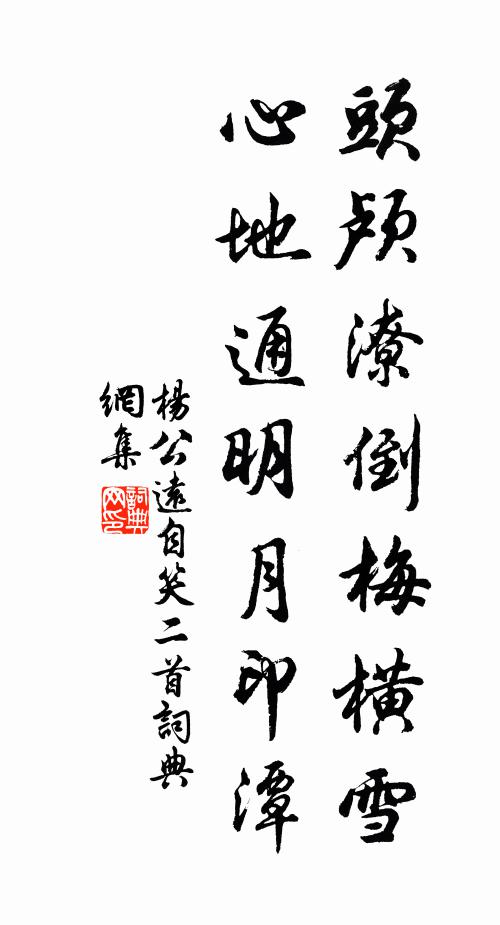 頭顱潦倒梅橫雪
心地通明月印潭
楊公遠自笑二首詞典
網集
詞典網印